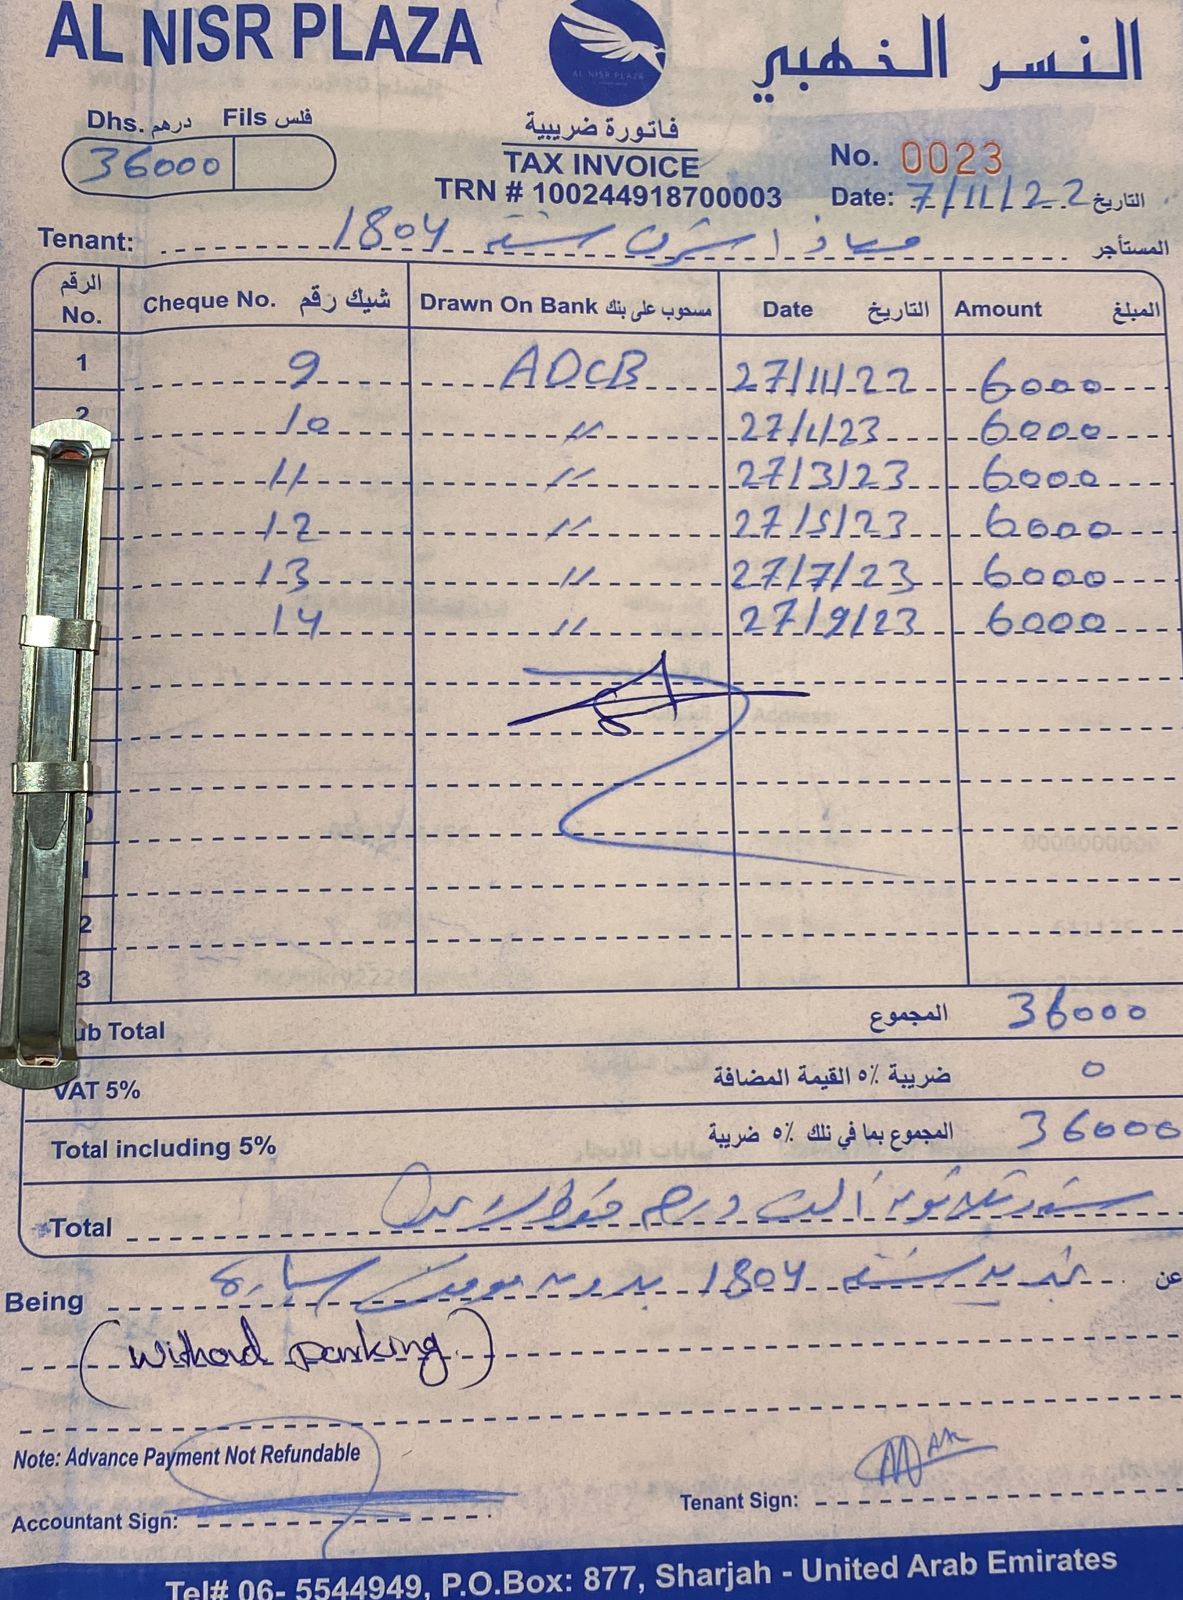 AL NISR PLAZA
AL NISR PLAZA
النسر الخهبي
Dhs. درهم Fils فلس
36000
فاتورة ضريبية
TAX INVOICE
TRN # 100244918700003
No. 0023
Date: 7/11/22 التاريخ
Tenant: شقة 1804 المستأجر
الرقم No. Cheque No. شيك رقم Drawn On Bank مسحوب على بنك Date التاريخ Amount المبلغ
1 9 ADCB 27/11/22 6000
2 10 〃 27/1/23 6000
11 〃 27/3/23 6000
12 〃 27/5/23 6000
13 〃 27/7/23 6000
14 〃 27/9/23 6000
0
1
2
3
ub Total المجموع 36000
VAT 5% ضريبة ٥٪ القيمة المضافة 0
Total including 5% المجموع بما في نلك ٥٪ ضريبة 36000
Total ستة وثلاثون الف درهم فقط لا غير
Being تجديد شقة 1804 بدون موقف سيارة عن
(without parking)
Note: Advance Payment Not Refundable
Accountant Sign:
Tenant Sign:
Tel# 06- 5544949, P.O.Box: 877, Sharjah - United Arab Emirates